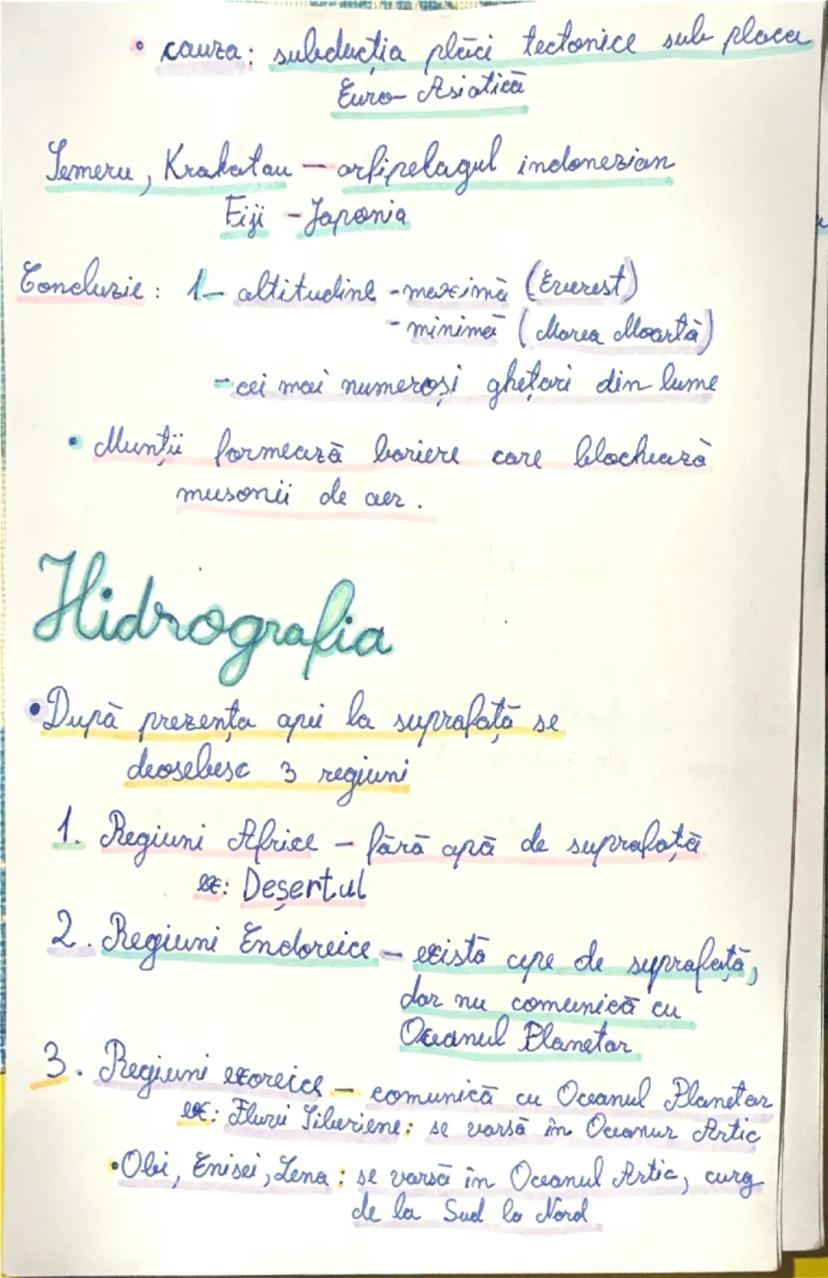 • cauza: subducția plăci tectonice sub placa
Euro-Asiatică
Semeru, Krakatau — arhipelagul indonezian
Fiji - Japonia
Concluzie: 1- altitudine - maximă (Everest)
- minimă (Marea Moartă)
- cei mai numeroși ghețari din lume
• Munții formează bariere care blochează
musonii de aer.
Hidrografia
• După prezența apei la suprafață se
deosebesc 3 regiuni
1. Regiuni Africe - fără apă de suprafață
ex: Deșertul
2. Regiuni Endoreice - există ape de suprafață,
dar nu comunică cu
Oceanul Planetar
3. Regiuni exoreice - comunică cu Oceanul Planetar
ex: Fluvii Siberiene: se varsă în Oceanur Artic
• Obi, Enisei, Lena: se varsă în Oceanul Artic, curg
de la Sud la Nord